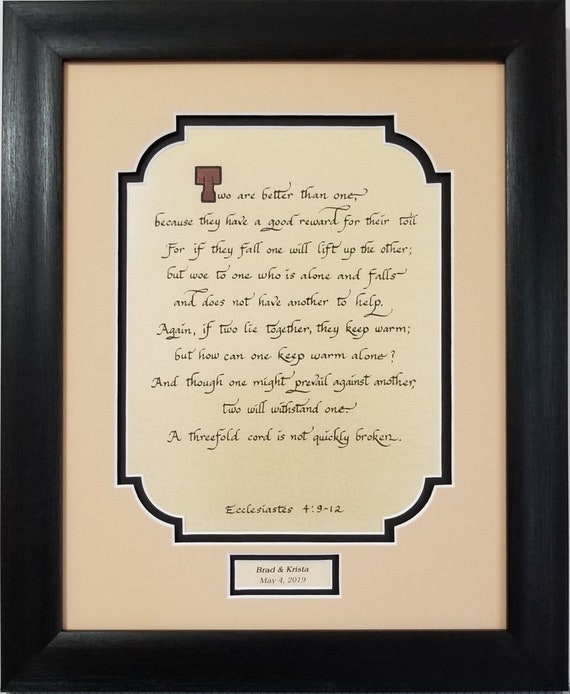 Two are better than one,
because they have a good reward for their toil
For if they fall one will lift up the other;
but woe to one who is alone and falls
and does not have another to help.
Again, if two lie together, they keep warm;
but how can one keep warm alone?
And though one might prevail against another,
two will withstand one.
A threefold cord is not quickly broken.
Ecclesiastes 4:9-12
Brad & Krista
May 4, 2019